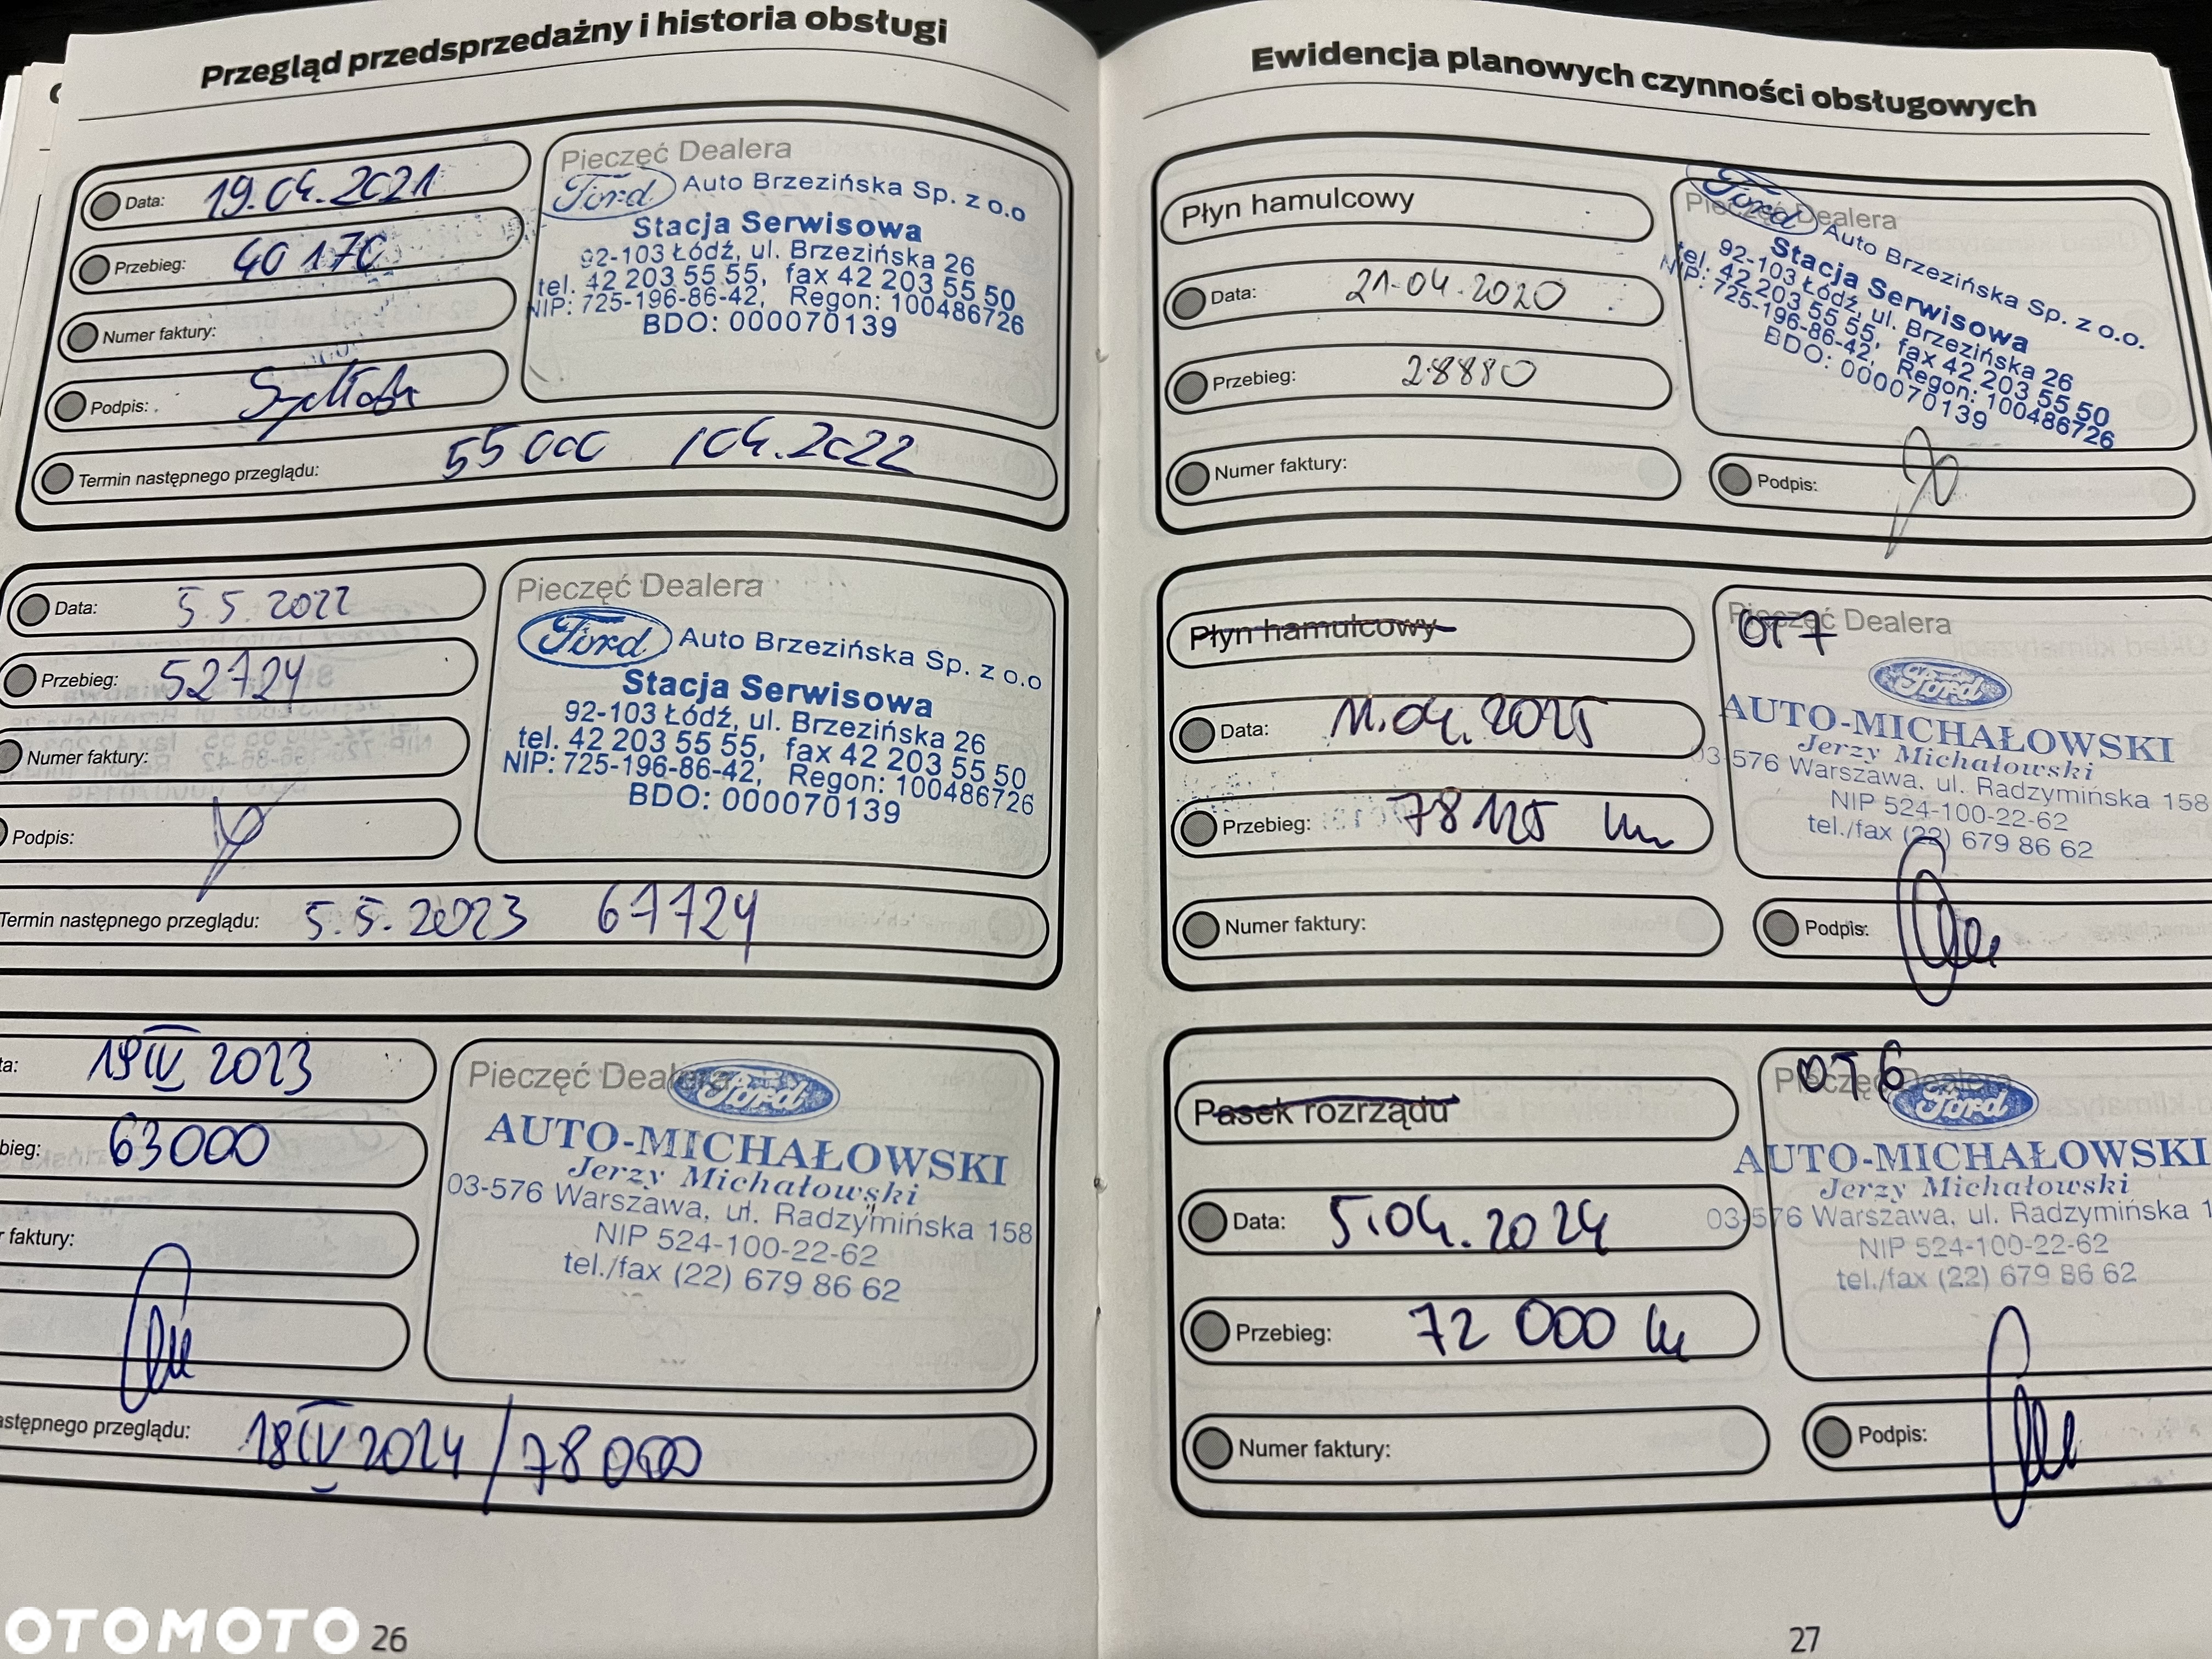 Przegląd przedsprzedażny i historia obsługi
Data: 19.04.2021
Przebieg: 40 170
Numer faktury:
Podpis:
Termin następnego przeglądu: 55 000 / 04.2022
Pieczęć Dealera
Ford Auto Brzezińska Sp. z o.o
Stacja Serwisowa
92-103 Łódź, ul. Brzezińska 26
tel. 42 203 55 55, fax 42 203 55 50
NIP: 725-196-86-42, Regon: 100486726
BDO: 000070139
Data: 5.5.2022
Przebieg: 52724
Numer faktury:
Podpis:
Termin następnego przeglądu: 5.5.2023 67724
Pieczęć Dealera
Ford Auto Brzezińska Sp. z o.o
Stacja Serwisowa
92-103 Łódź, ul. Brzezińska 26
tel. 42 203 55 55, fax 42 203 55 50
NIP: 725-196-86-42, Regon: 100486726
BDO: 000070139
ta: 19 IV 2023
bieg: 63000
r faktury:
astępnego przeglądu: 18 IV 2024 / 78 000
Pieczęć Dealera
Ford
AUTO-MICHAŁOWSKI
Jerzy Michałowski
03-576 Warszawa, ul. Radzymińska 158
NIP 524-100-22-62
tel./fax (22) 679 86 62
OTOMOTO
26
Ewidencja planowych czynności obsługowych
Płyn hamulcowy
Data: 21-04-2020
Przebieg: 28880
Numer faktury:
Pieczęć Dealera
Ford Auto Brzezińska Sp. z o.o.
Stacja Serwisowa
92-103 Łódź, ul. Brzezińska 26
tel. 42 203 55 55, fax 42 203 55 50
NIP: 725-196-86-42, Regon: 100486726
BDO: 000070139
Podpis:
Płyn hamulcowy
Data: 11.04.2025
Przebieg: 78125 km
Numer faktury:
Pieczęć Dealera
OT7
Ford
AUTO-MICHAŁOWSKI
Jerzy Michałowski
03-576 Warszawa, ul. Radzymińska 158
NIP 524-100-22-62
tel./fax (22) 679 86 62
Podpis:
Pasek rozrządu
Data: 5.04.2024
Przebieg: 72 000 km
Numer faktury:
Pieczęć Dealera
OT6
Ford
AUTO-MICHAŁOWSKI
Jerzy Michałowski
03-576 Warszawa, ul. Radzymińska 1
NIP 524-100-22-62
tel./fax (22) 679 86 62
Podpis:
27